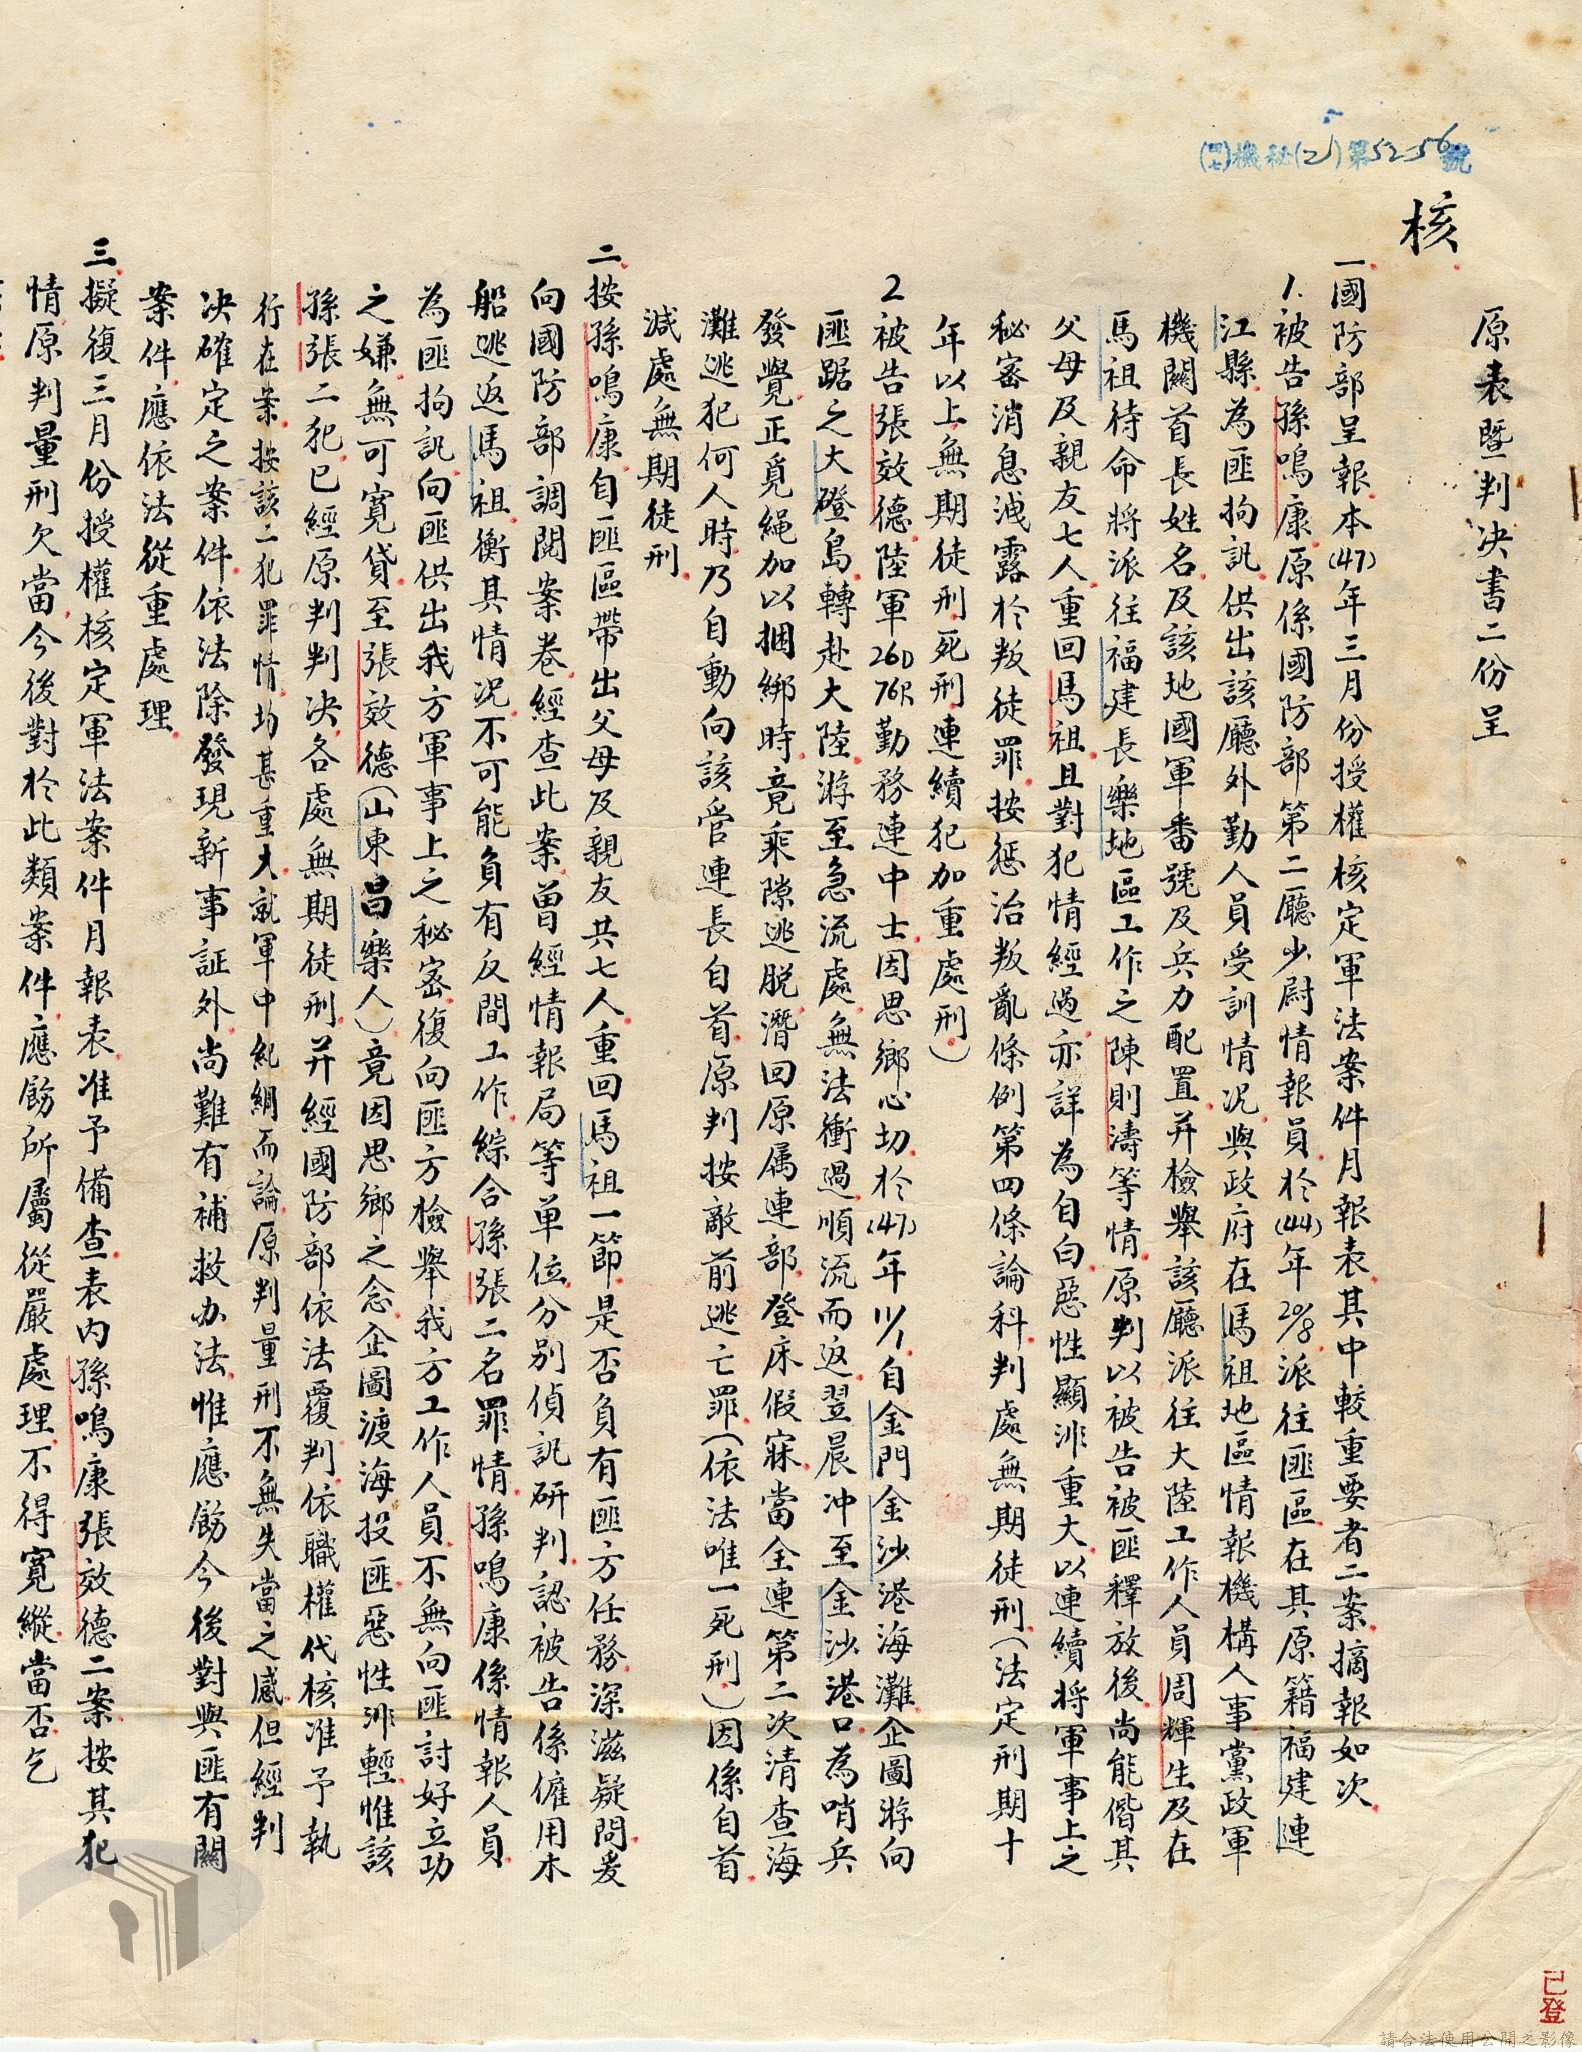 (四七)機秘(乙)第52-56號
原表暨判決書二份呈
核
一國防部呈報本(47)年三月份授權核定軍法案件月報表其中較重要者二案摘報如次
1.被告孫鳴康原係國防部第二廳少尉情報員於(44)年20/8派往匪區在其原籍福建連
江縣為匪拘訊供出該廳外勤人員受訓情況與政府在馬祖地區情報機構人事黨政軍
機關首長姓名及該地國軍番號及兵力配置并檢舉該廳派往大陸工作人員周輝生及在
馬祖待命將派往福建長樂地區工作之陳則濤等情原判以被告被匪釋放後尚能偕其
父母及親友七人重回馬祖且對犯情經過亦詳為自白惡性顯非重大以連續將軍事上之
秘密消息洩露於叛徒罪按懲治叛亂條例第四條論科判處無期徒刑(法定刑期十
年以上無期徒刑死刑連續犯加重處刑)
2被告張效德陸軍26D76R勤務連中士因思鄉心切於(47)年11/1自金門金沙港海灘企圖游向
匪踞之大磴島轉赴大陸游至急流處無法衝過順流而返翌晨沖至金沙港口為哨兵
發覺正覓繩加以捆綁時竟乘隙逃脫潛回原属連部登床假寐當全連第二次清查海
灘逃犯何人時乃自動向該管連長自首原判按敵前逃亡罪(依法唯一死刑)因係自首
減處無期徒刑
二按孫鳴康自匪區帶出父母及親友共七人重回馬祖一節是否負有匪方任務深滋疑問爰
向國防部調閱案卷經查此案曾經情報局等單位分別偵訊研判認被告係僱用木
船逃返馬祖衡其情況不可能負有反間工作綜合孫張二名罪情孫鳴康係情報人員
為匪拘訊向匪供出我方軍事上之秘密復向匪方檢舉我方工作人員不無向匪討好立功
之嫌無可寬貸至張效德(山東昌樂人)竟因思鄉之念企圖渡海投匪惡性非輕惟該
孫張二犯已經原判判決各處無期徒刑并經國防部依法覆判依職權代核准予執
行在案按該二犯罪情均甚重大就軍中紀綱而論原判量刑不無失當之感但經判
決確定之案件依法除發現新事証外尚難有補救办法惟應飭今後對與匪有關
案件應依法從重處理
三擬復三月份授權核定軍法案件月報表准予備查表內孫鳴康張效德二案按其犯
情原判量刑欠當今後對於此類案件應飭所屬從嚴處理不得寬縱當否乞
已登
請合法使用公開之影像